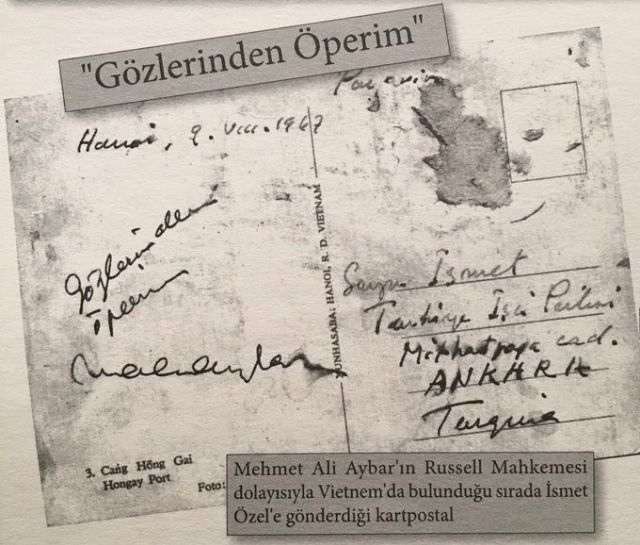 "Gözlerinden Öperim"
Hanoi, 9. VIII. 1967
Gözlerinden
öperim
XUNHASABA; HANOI, R. D. VIETNAM
Sayın İsmet
Türkiye İşçi Partisi
Mithatpaşa cad.
ANKARA
Turquie
3. Cảng Hồng Gai
Hongay Port
Foto:
Mehmet Ali Aybar'ın Russell Mahkemesi
dolayısıyla Vietnem'da bulunduğu sırada İsmet
Özel'e gönderdiği kartpostal